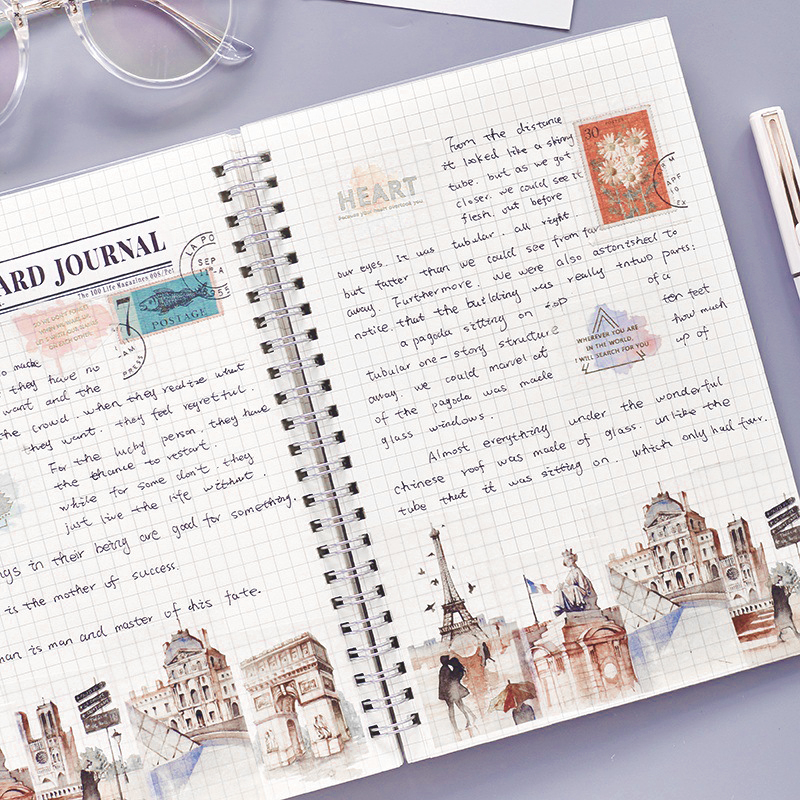 ARD JOURNAL
The 100 Life Magazines 008/Pet
LA PO
SEP
1955
7
POSTAGE
AM
PRESS
to made
they have no
want and the
the crowd. when they realize what
they want. they feel regretful.
For the lucky person, they have
the thance to restart.
while for some don't. they
just live the life without.
ngs in their being are good for something.
is the mother of success.
man is man and master of his fate.
HEART
Because your heart
you
From the distance
it looked like a skinny
tube. but as we got
closer. we could see it
flesh out before
our eyes. It was tubular. all right
but fatter than we could see from far
away. Furthermore. we were also astonished to
notice. that the building was really intwo parts:
a pagoda sitting on top of a
tubular one-story structure ten feet
away. we could marvel at how much
of the pagoda was made up of
glass windows.
Almost everything under the wonderful
chinese roof was made of glass. unlike the
tube that it was sitting on. which only had four.
30
APR
10
WHEREVER YOU ARE
IN THE WORLD,
I WILL SEARCH FOR YOU